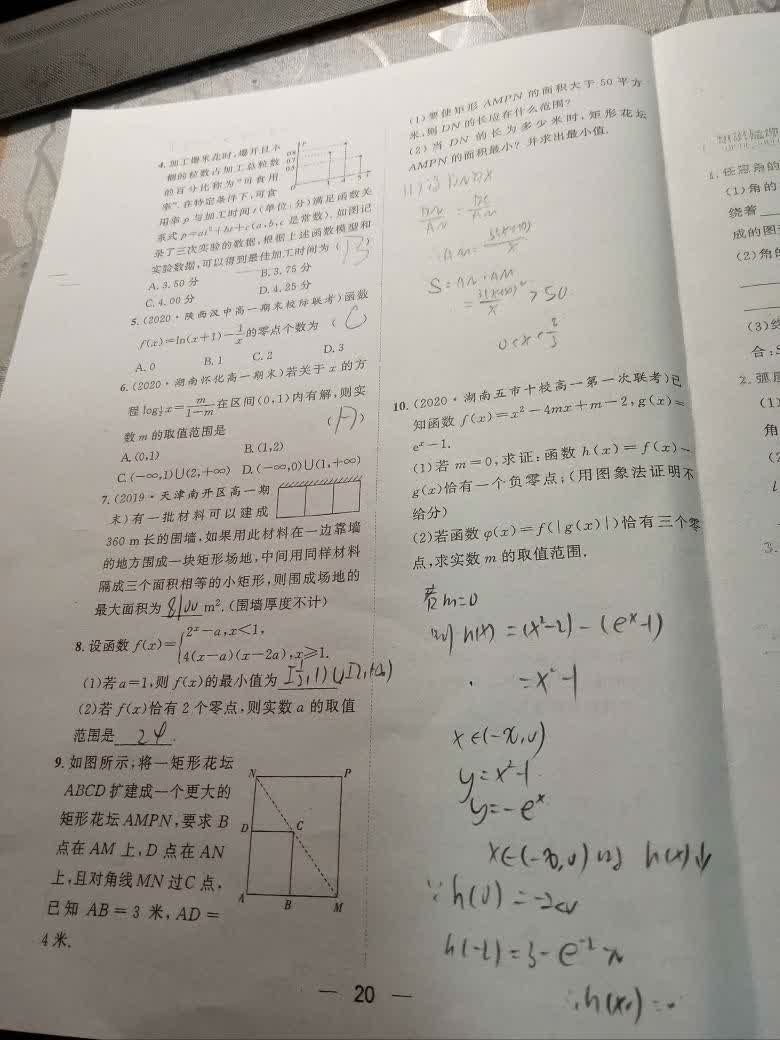 4.加工爆米花时,爆开且不
糊的粒数占加工总粒数
的百分比称为“可食用
率”.在特定条件下,可食
用率p与加工时间t(单位:分)满足函数关
系式p=at²+bt+c(a,b,c是常数).如图记
录了三次实验的数据,根据上述函数模型和
实验数据,可以得到最佳加工时间为( B )
A.3.50分 B.3.75分
C.4.00分 D.4.25分
P
0.8
0.7
0.5
O 3 4 5 t
5.(2020·陕西汉中高一期末校际联考)函数
f(x)=ln(x+1)-1/x的零点个数为 ( C )
A.0 B.1 C.2 D.3
6.(2020·湖南怀化高一期末)若关于x的方
程log½x=m/(1-m)在区间(0,1)内有解,则实
数m的取值范围是 ( A )
A.(0,1) B.(1,2)
C.(-∞,1)∪(2,+∞) D.(-∞,0)∪(1,+∞)
7.(2019·天津南开区高一期
末)有一批材料可以建成
360 m长的围墙,如果用此材料在一边靠墙
的地方围成一块矩形场地,中间用同样材料
隔成三个面积相等的小矩形,则围成场地的
最大面积为 8100 m².(围墙厚度不计)
8.设函数f(x)={2ˣ-a,x<1,
4(x-a)(x-2a),x≥1.
(1)若a=1,则f(x)的最小值为
(2)若f(x)恰有2个零点,则实数a的取值
范围是
9.如图所示,将一矩形花坛
ABCD扩建成一个更大的
矩形花坛AMPN,要求B
点在AM上,D点在AN
上,且对角线MN过C点,
已知AB=3米,AD=
4米.
N P
D C
A B M
(1)要使矩形AMPN的面积大于50平方
米,则DN的长应在什么范围?
(2)当DN的长为多少米时,矩形花坛
AMPN的面积最小?并求出最小值.
(1)设DN为x
DN/AN=DC/AM
S=AN·AM
>50
0<x<2/3
10.(2020·湖南五市十校高一第一次联考)已
知函数f(x)=x²-4mx+m-2,g(x)=
eˣ-1.
(1)若m=0,求证:函数h(x)=f(x)-
g(x)恰有一个负零点;(用图象法证明不
给分)
(2)若函数φ(x)=f(|g(x)|)恰有三个零
点,求实数m的取值范围.
若m=0
则h(x)=(x²-2)-(eˣ-1)
=x²-1
x∈(-∞,0)
y=x²-1
y=-eˣ
x∈(-∞,0)则h(x)↓
∵h(0)=-2<0
— 20 —
1.任意角的
(1)角的
绕着
成的图
(2)角的
(3)终
合:S
2.弧度
(1)
角
(2
3.